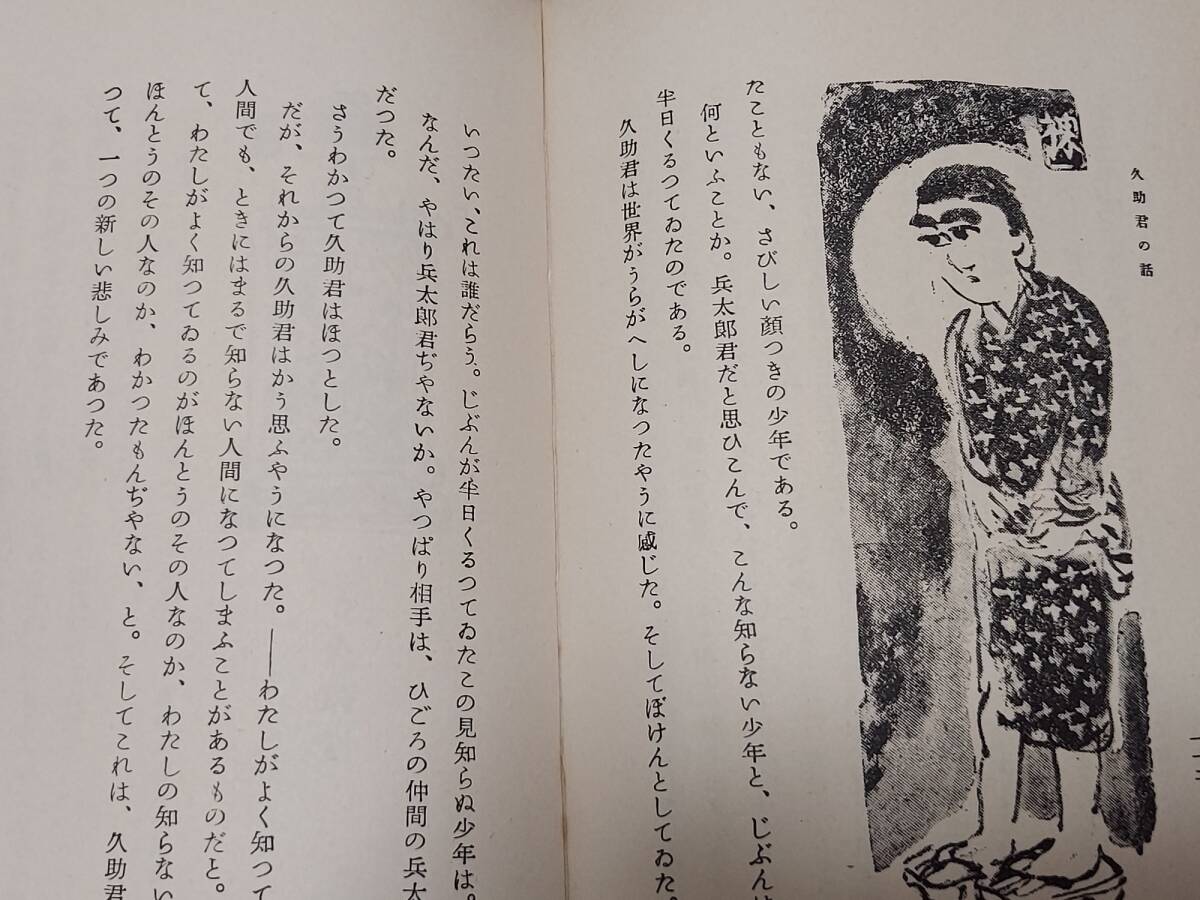 久助君の話
棟
たこともない、さびしい顔つきの少年である。
何といふことか。兵太郎君だと思ひこんで、こんな知らない少年と、じぶんは
半日くるつてゐたのである。
久助君は世界がうらがへしになつたやうに感じた。そしてぼけんとしてゐた。
いつたい、これは誰だらう。じぶんが半日くるつてゐたこの見知らぬ少年は。
なんだ、やはり兵太郎君ぢやないか。やつぱり相手は、ひごろの仲間の兵太
だつた。
さうわかつて久助君はほつとした。
だが、それからの久助君はかう思ふやうになつた。――わたしがよく知つて
人間でも、ときにはまるで知らない人間になつてしまふことがあるものだと。
て、わたしがよく知つてゐるのがほんとうのその人なのか、わたしの知らない
ほんとうのその人なのか、わかつたもんぢやない、と。そしてこれは、久助君
つて、一つの新しい悲しみであつた。